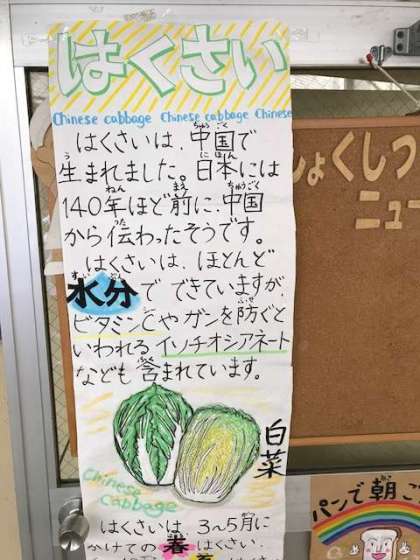 はくさい
Chinese cabbage Chinese cabbage Chinese
はくさいは、中国で
生まれました。日本には
140年ほど前に、中国
から伝わったそうです。
はくさいは、ほとんど
水分でできていますが、
ビタミンCやガンを防ぐと
いわれるイソチオシアネート
なども含まれています。
白菜
Chinese
Cabbage
はくさいは、3〜5月に
かけての春はくさい、
しょくしつ
ニュー
パンで朝ご